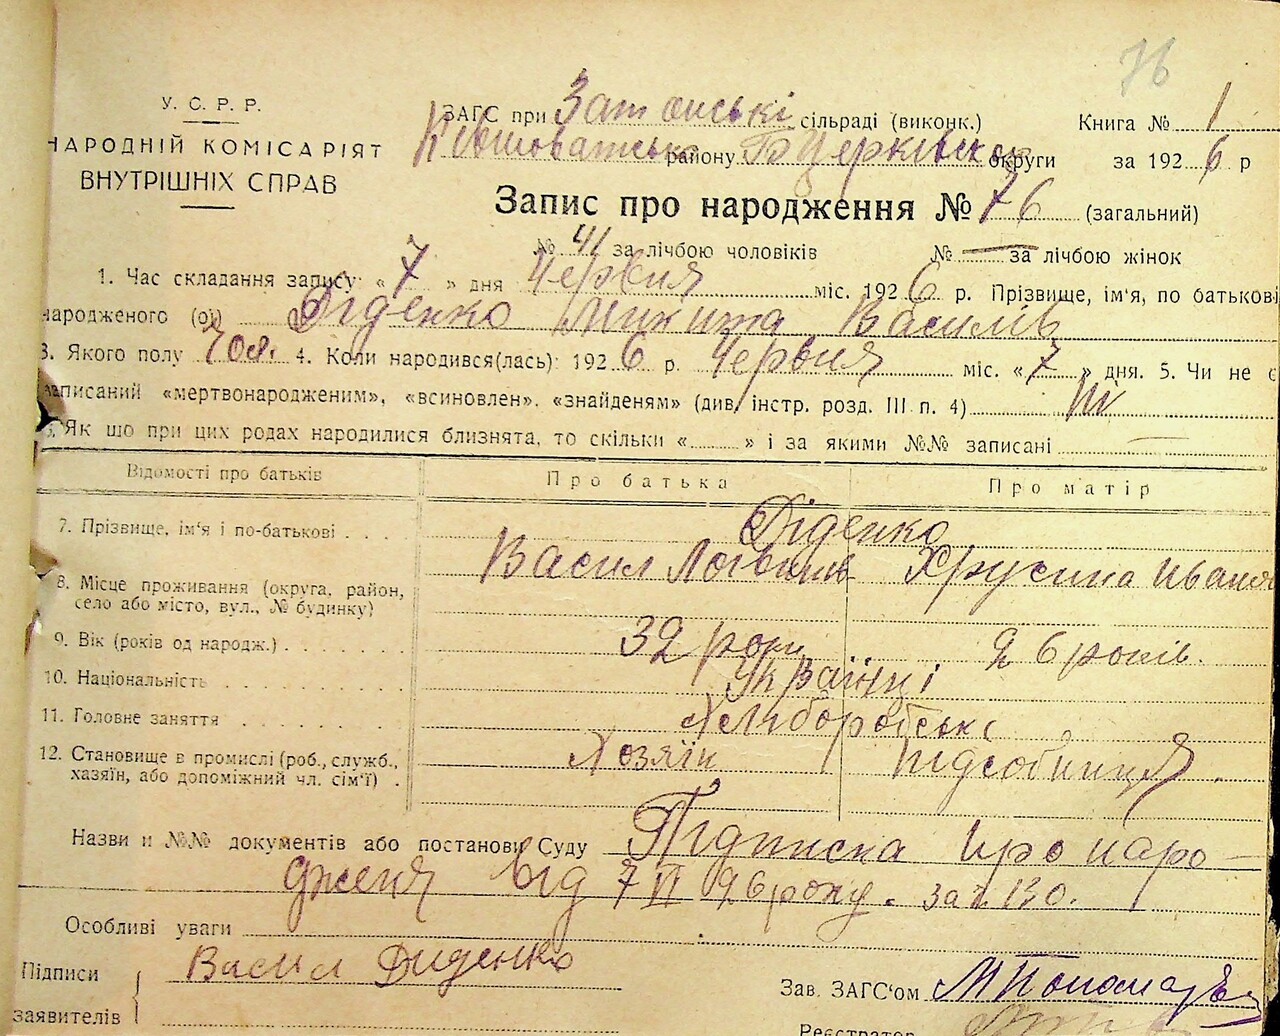 76
У. С. Р. Р.
НАРОДНІЙ КОМІСАРІЯТ
ВНУТРІШНІХ СПРАВ
ЗАГС при Затонські сільраді (виконк.) Книга № 1
району Б Церківськ округи за 1926 р
Запис про народження № 76 (загальний)
№ 41 за лічбою чоловіків № — за лічбою жінок
1. Час складання запису: «7» дня Червня міс. 1926 р. Прізвище, ім'я, по батькові
народженого (ої) Діденко Микита Василів
3. Якого полу чол. 4. Коли народився(лась): 1926 р. Червня міс. «7» дня. 5. Чи не є
записаний «мертвонародженим», «всиновлен», «знайденям» (див. інстр. розд. III п. 4) Ні
6. Як що при цих родах народилися близнята, то скільки «......» і за якими №№ записані —
Відомості про батьків Про батька Про матір
7. Прізвище, ім'я і по-батькові Діденко
Васил Логвинів Хрусина Іванів
8. Місце проживання (округа, район,
село або місто, вул., № будинку)
9. Вік (років од народж.) 32 роки 26 років.
10. Національність Українці
11. Головне заняття Хліборобські
12. Становище в промислі (роб., служб., Хозяін підсобниця.
хазяїн, або допоміжний чл. сім'ї)
Назви и №№ документів або постанови Суду Підписка про наро-
дженя від 7 VI 26 року. за № 130.
Особливі уваги
Підписи Васил Диденко
заявителів
Зав. ЗАГС'ом М Пономар
Реєстратор